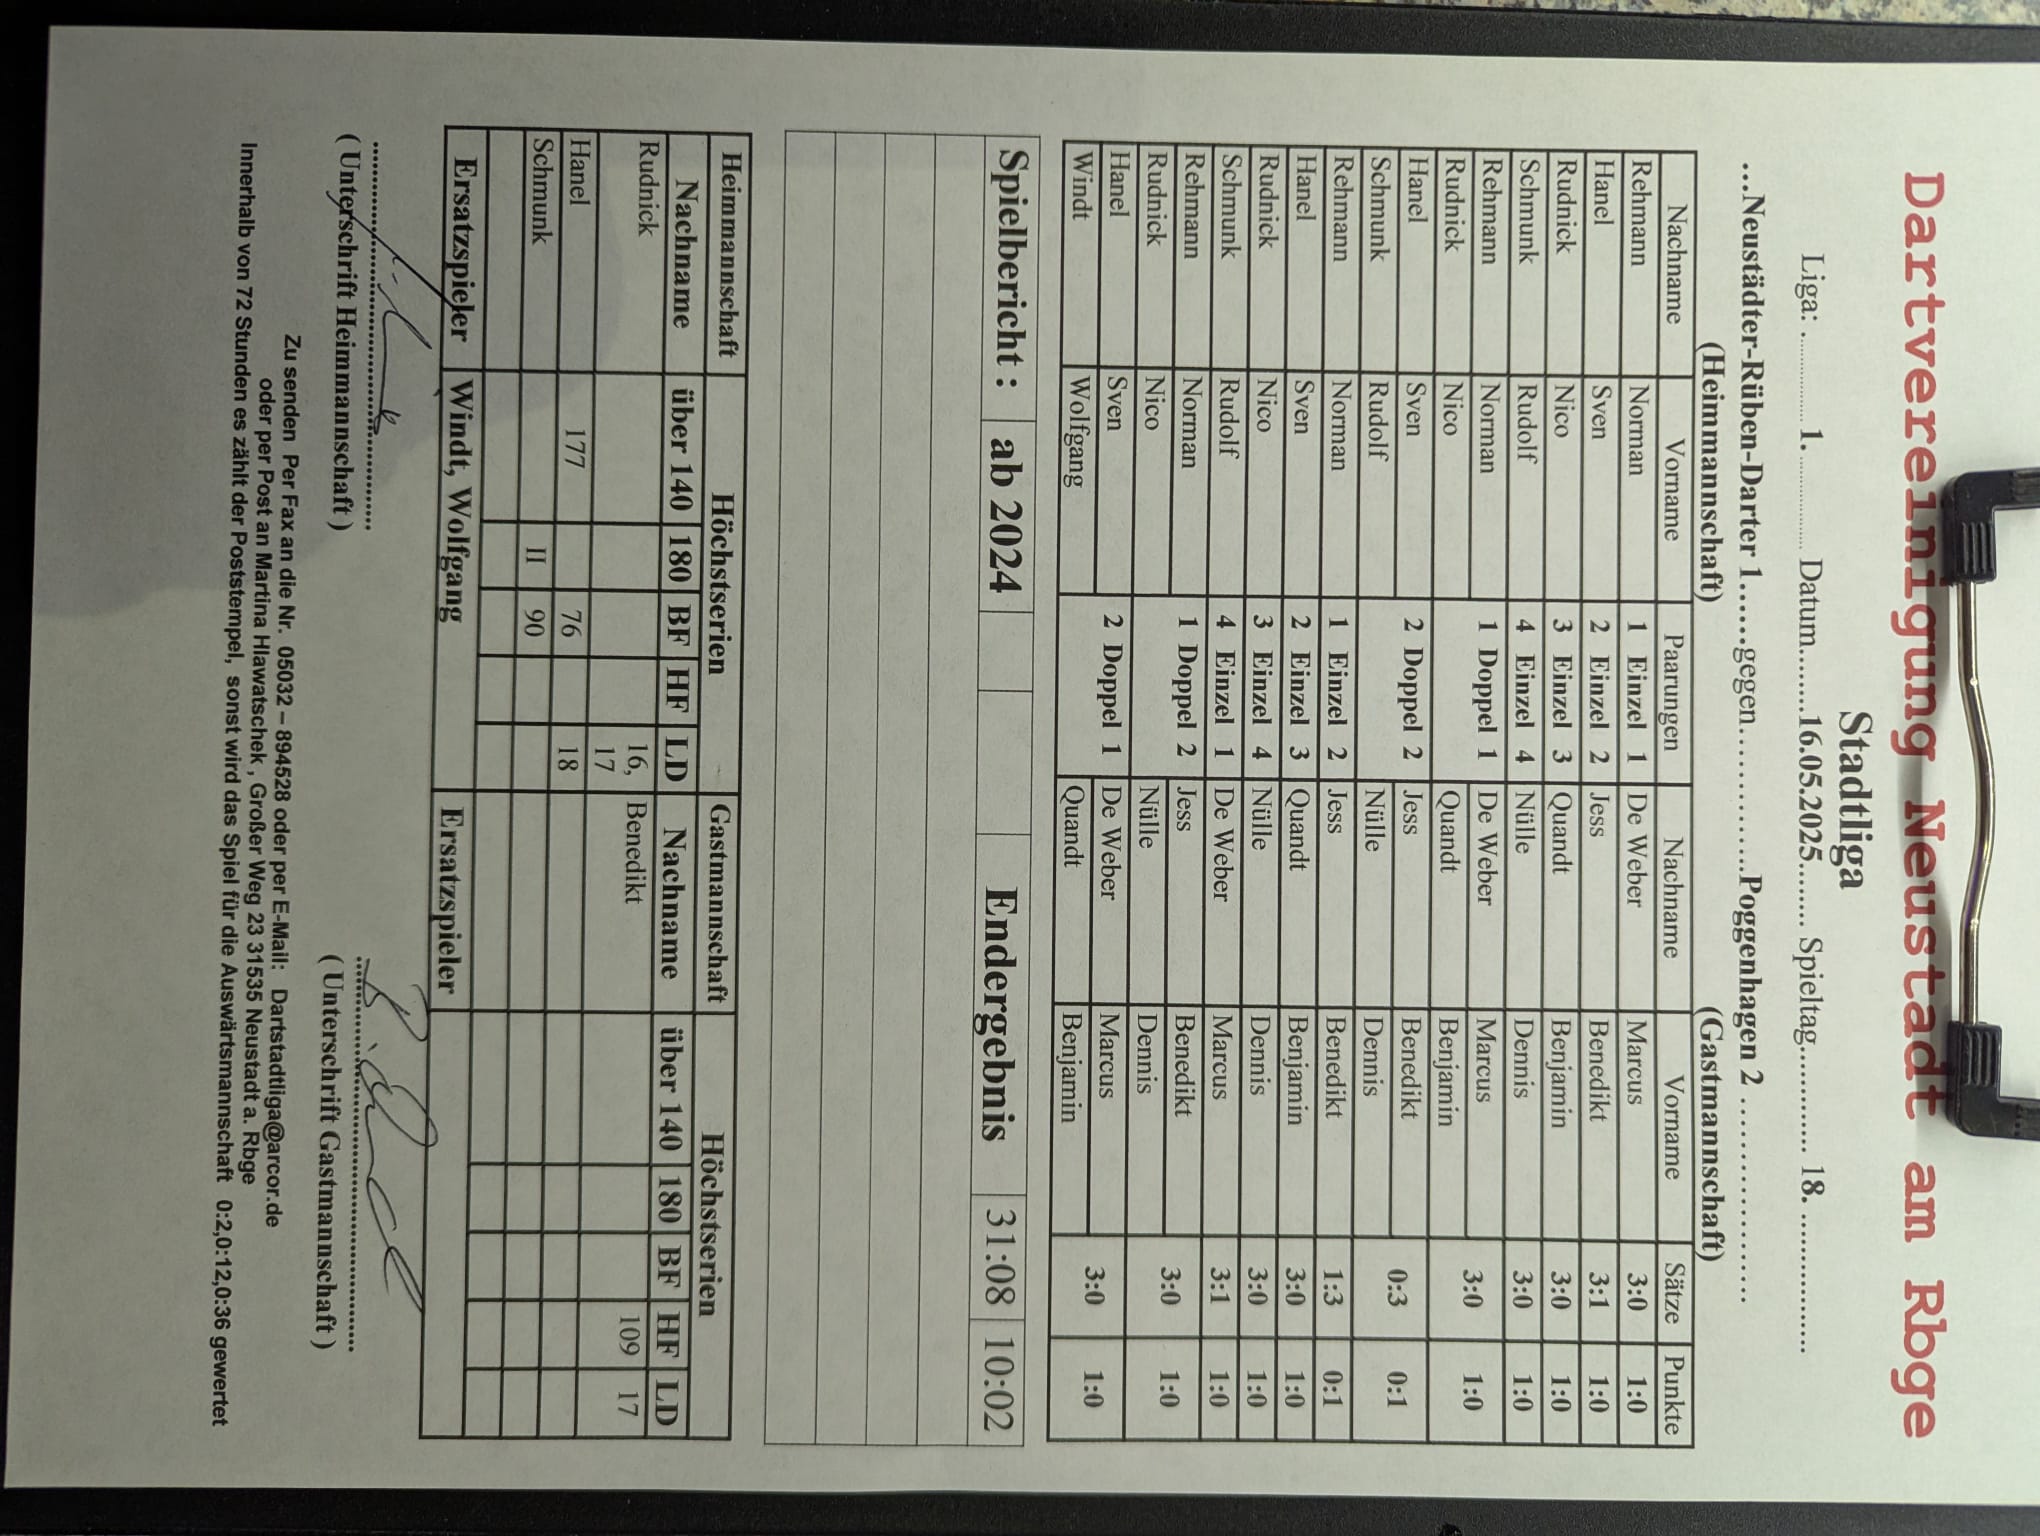 Dartvereinigung Neustadt am Rbge
Stadtliga
Liga: ............ 1. ............ Datum.........16.05.2025....... Spieltag............. 18. ..................
...Neustädter-Rüben-Darter 1......gegen.................Poggenhagen 2 ........................
(Heimmannschaft) (Gastmannschaft)
Nachname Vorname Paarungen Nachname Vorname Sätze Punkte
Rehmann Norman 1 Einzel 1 De Weber Marcus 3:0 1:0
Hanel Sven 2 Einzel 2 Jess Benedikt 3:1 1:0
Rudnick Nico 3 Einzel 3 Quandt Benjamin 3:0 1:0
Schmunk Rudolf 4 Einzel 4 Nülle Dennis 3:0 1:0
Rehmann Norman 1 Doppel 1 De Weber Marcus 3:0 1:0
Rudnick Nico Quandt Benjamin
Hanel Sven 2 Doppel 2 Jess Benedikt 0:3 0:1
Schmunk Rudolf Nülle Dennis
Rehmann Norman 1 Einzel 2 Jess Benedikt 1:3 0:1
Hanel Sven 2 Einzel 3 Quandt Benjamin 3:0 1:0
Rudnick Nico 3 Einzel 4 Nülle Dennis 3:0 1:0
Schmunk Rudolf 4 Einzel 1 De Weber Marcus 3:1 1:0
Rehmann Norman 1 Doppel 2 Jess Benedikt 3:0 1:0
Rudnick Nico Nülle Dennis
Hanel Sven 2 Doppel 1 De Weber Marcus 3:0 1:0
Windt Wolfgang Quandt Benjamin
Spielbericht : ab 2024 Endergebnis 31:08 10:02
Heimmannschaft Höchstserien Gastmannschaft Höchstserien
Nachname über 140 180 BF HF LD Nachname über 140 180 BF HF LD
Rudnick 16, Benedikt 109 17
17
Hanel 177 76 18
Schmunk II 90
Ersatzspieler Windt, Wolfgang Ersatzspieler
( Unterschrift Heimmannschaft ) ( Unterschrift Gastmannschaft )
Zu senden Per Fax an die Nr. 05032 – 894528 oder per E-Mail: Dartstadtliga@arcor.de
oder per Post an Martina Hlawatschek , Großer Weg 23 31535 Neustadt a. Rbge
Innerhalb von 72 Stunden es zählt der Poststempel, sonst wird das Spiel für die Auswärtsmannschaft 0:2,0:12,0:36 gewertet